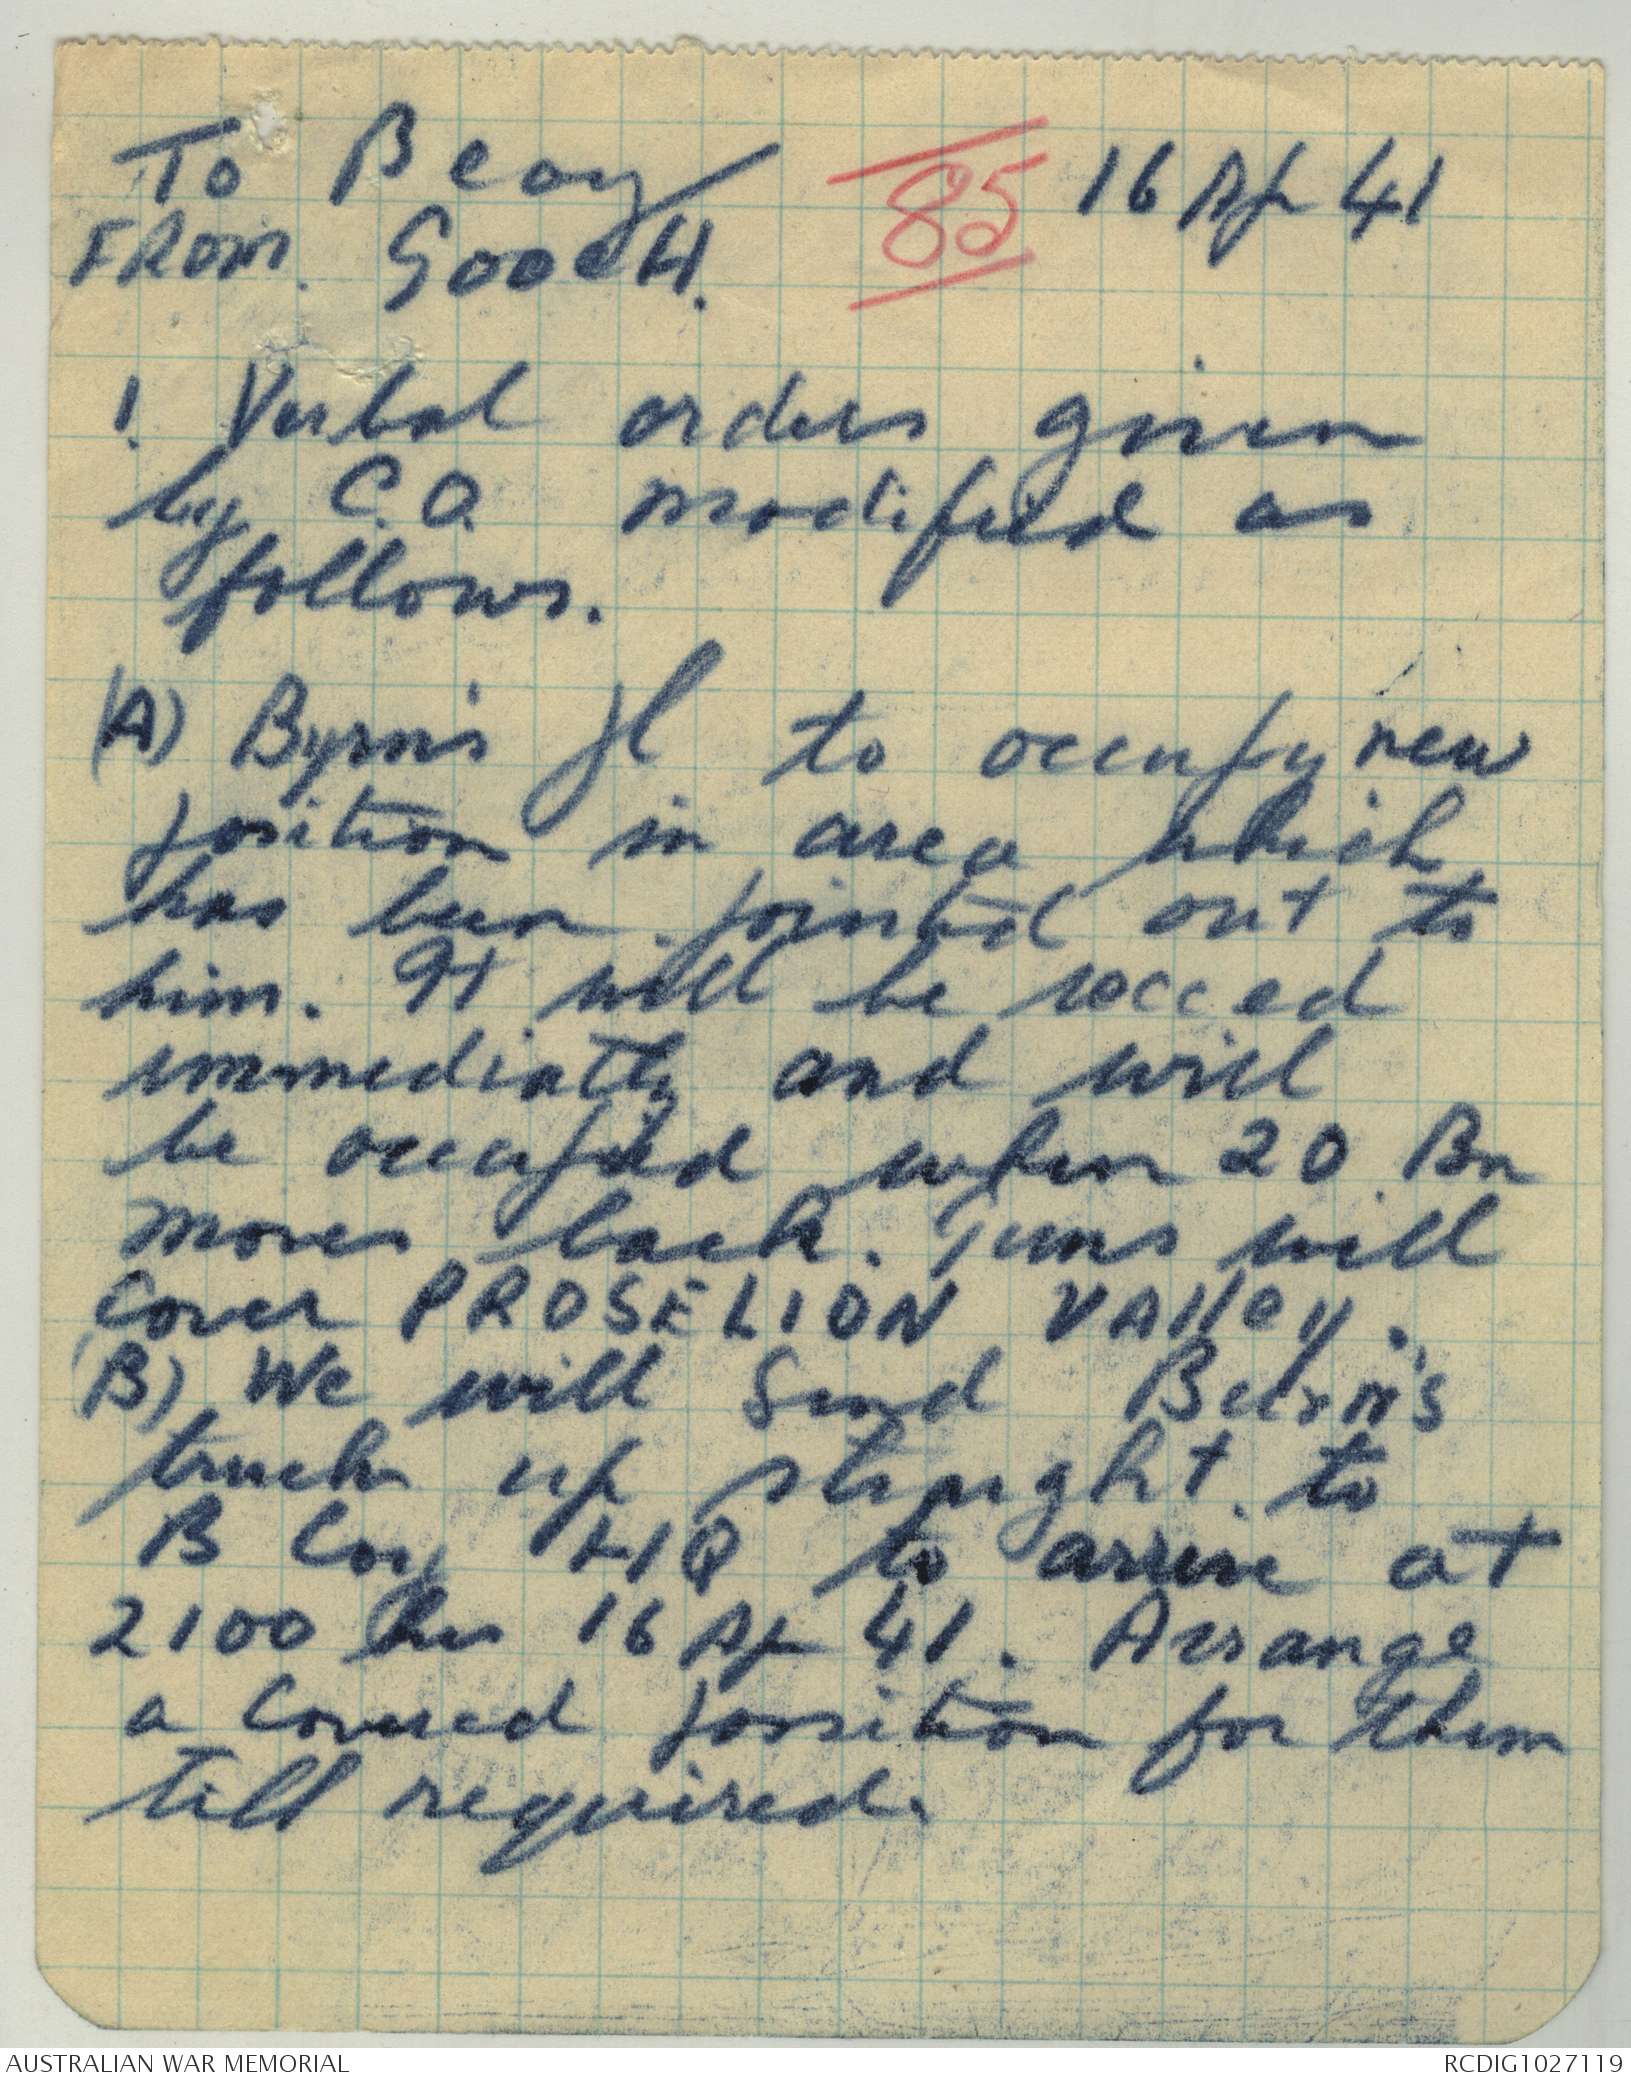 To B Coy 85 16 Ap 41
FROM. GOOCH.
1. Verbal orders given
by C.O. modified as
follows.
(A) Byrn's pl to occupy new
position in area which
has been pointed out to
him. It will be recced
immediatly and will
be occupied when 20 Bn
moves back. Guns will
cover PROSELION VAlley.
(B) We will send Burn's
truck up straight to
B Coy HQ to arrive at
2100 hrs 16 Ap 41. Arrange
a covered position for them
till required.
AUSTRALIAN WAR MEMORIAL RCDIG1027119